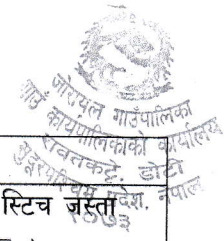 जोरायल गाउँपालिका
गाउँ कार्यपालिकाको कार्यालय
रावतकट्टे, डोटी
सुदूरपश्चिम प्रदेश, नेपाल
२०७३
स्टिच जस्ता